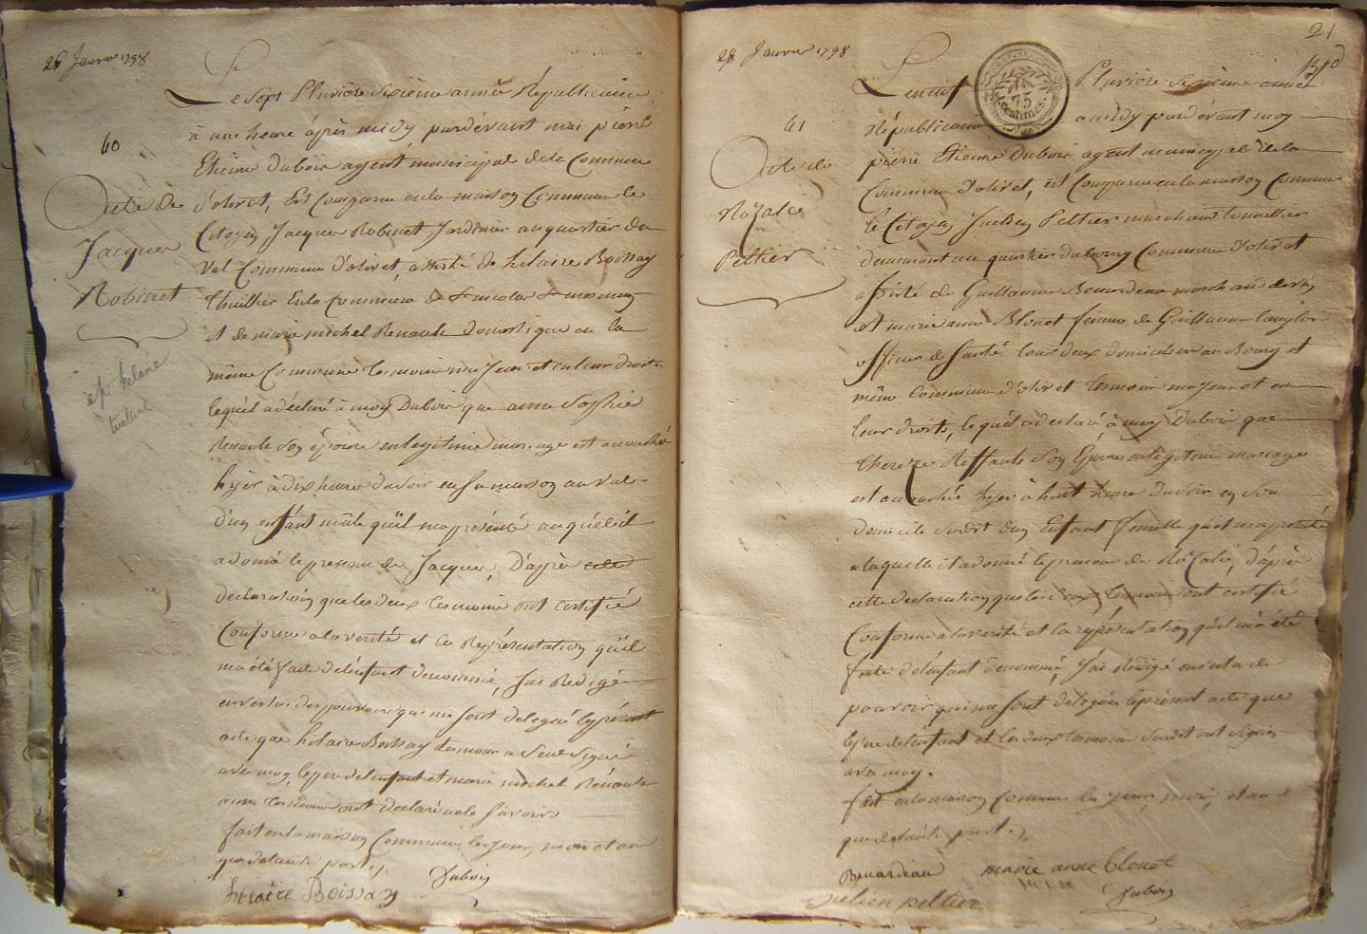 26 Janvier 1798
60
Acte de
Jacques
Robinet
Le Sept Pluviose Sixieme année Républicaine
à une heure après midy pardevant moi pierre
Etienne Dubois agent municipal de la Commune
d'olivet, Est Comparu en la maison Commune le
Citoyen Jacques Robinet Jardinier au quartier du
Val Commune d'olivet, assisté de hilaire Boissay
thuillier en la Commune de St nicolas St mesmin
et de marie michel Renault Domestique en la
même Commune temoins majeurs et en leur droits
lequel a déclaré à moy Dubois que anne Sophie
Renault Son épouse en legitime mariage est accouché
hyer à dix heures du soir en sa maison au Val
d'un enfant mâle qu'il m'a présenté auquel il
a donné le prenom de Jacques, D'après cette
declaration que les deux temoins ont certifié
Conforme a la verité et la Représentation qu'il
m'a été faite de l'enfant denommé, J'ai Redigé
en vertu des pouvoirs qui me sont delegué le présent
acte que hilaire Boissay temoin a Seul Signé
avec moy, le pere de l'enfant et marie michel Renault
autre temoin ont declaré ne le Savoir
fait en la maison Commune les jour, mois et an
que d'autre part,
hilaire Boissay Dubois
21
28 Janvier 1798
61
Acte de
Rozalie
Peltier
Le neuf Pluviose Sixieme année
75
centimes.
Républicaine a midy pardevant moy
pierre Etienne Dubois agent municipal de la
Commune d'olivet, est Comparu en la maison Commune
le Citoyen Julien Peltier marchand tonnellier
demeurant au quartier du bourg Commune d'olivet
assisté de Guillaume Benardeau marchand de vin
et marie anne Blonet femme de Guillaume Langlois
officier de Santé tous deux domiciliés au Bourg et
même Commune d'olivet temoins majeurs et en
leur droits, lequel a declaré à moy Dubois que
Therese Son Epouse en legitime mariage
est accouchée hyer à huit heure du soir en son
domicile susdit d'un Enfant femelle qu'il m'a présenté
a laquelle il a donné le prenom de Rozalie, d'après
cette declaration que les deux temoins ont certifié
Conforme a la verité et la représentation qu'il m'a été
faite de l'enfant denommé, J'ai Rédigé en vertu des
pouvoir qui me sont delegués le présent acte que
le pere de l'enfant et les deux temoins Susdit ont Signés
avec moy.
fait en la maison Commune les jour, mois, et an
que d'autre part.
Benardeau marie anne blonet
Julien peltier Dubois